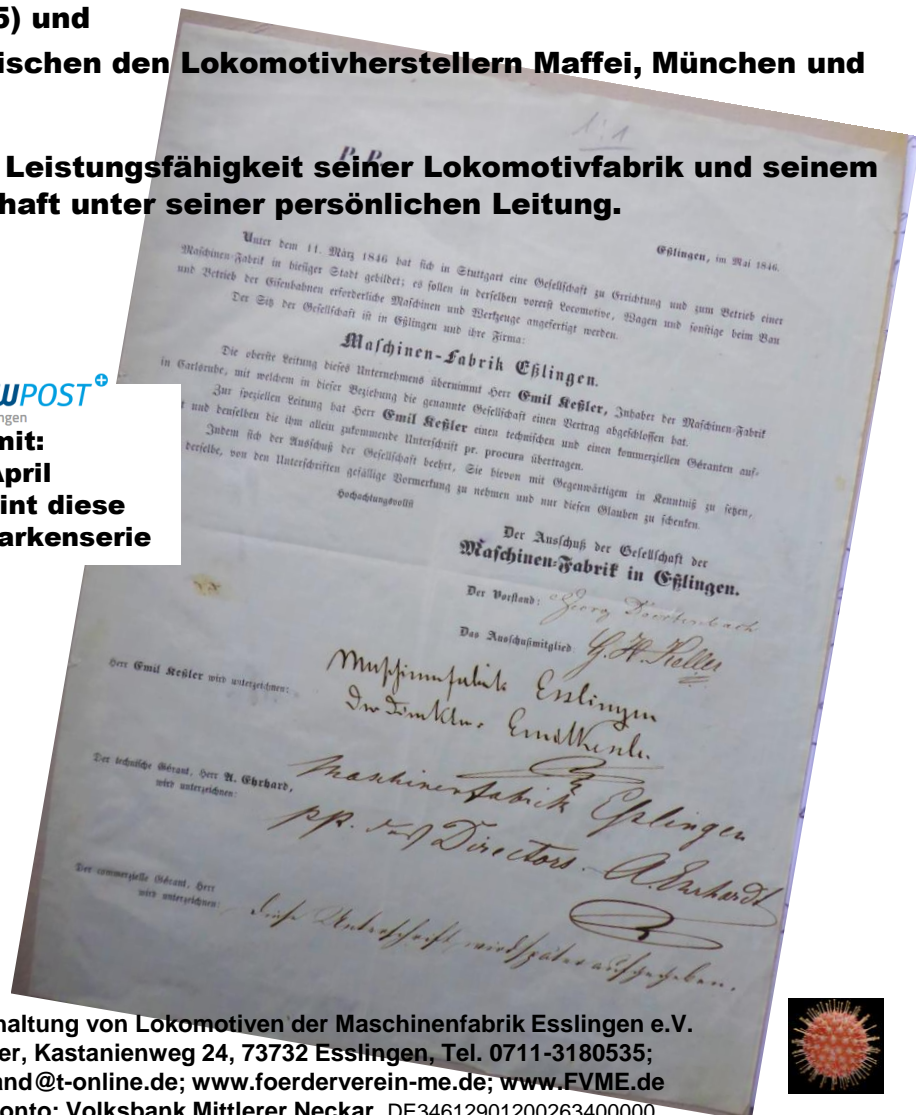 5) und
ischen den Lokomotivherstellern Maffei, München und
Leistungsfähigkeit seiner Lokomotivfabrik und seinem
haft unter seiner persönlichen Leitung.
1:1
P. P.
Eßlingen, im Mai 1846.
Unter dem 11. März 1846 hat sich in Stuttgart eine Gesellschaft zu Errichtung und zum Betrieb einer
Maschinen-Fabrik in hiesiger Stadt gebildet; es sollen in derselben vorerst Locomotive, Wagen und sonstige beim Bau
und Betrieb der Eisenbahnen erforderliche Maschinen und Werkzeuge angefertigt werden.
Der Sitz der Gesellschaft ist in Eßlingen und ihre Firma:
Maschinen-Fabrik Eßlingen.
Die oberste Leitung dieses Unternehmens übernimmt Herr Emil Keßler, Inhaber der Maschinen-Fabrik
in Carlsruhe, mit welchem in dieser Beziehung die genannte Gesellschaft einen Vertrag abgeschlossen hat.
Zur speziellen Leitung hat Herr Emil Keßler einen technischen und einen kommerziellen Géranten auf-
t und denselben die ihm allein zukommende Unterschrift pr. procura übertragen.
Indem sich der Ausschuß der Gesellschaft beehrt, Sie hievon mit Gegenwärtigem in Kenntniß zu setzen,
derselbe, von den Unterschriften gefällige Vormerkung zu nehmen und nur diesen Glauben zu schenken.
Hochachtungsvollst
Der Ausschuß der Gesellschaft der
Maschinen-Fabrik in Eßlingen.
Der Vorstand: Georg Doertenbach
Das Ausschußmitglied G. H. Keller
Herr Emil Keßler wird unterzeichnen:
Maschinenfabrik Esslingen
Der Direktor Emil Kessler
Der technische Gérant, Herr A. Ehrhard,
wird unterzeichnen:
Maschinenfabrik Eßlingen
pp. des Directors. A. Ehrhardt
Der commerzielle Gérant, Herr
wird unterzeichnen:
diese Unterschrift wird später aufgegeben.
WPOST+
ngen
mit:
April
int diese
arkenserie
haltung von Lokomotiven der Maschinenfabrik Esslingen e.V.
er, Kastanienweg 24, 73732 Esslingen, Tel. 0711-3180535;
and@t-online.de; www.foerderverein-me.de; www.FVME.de
onto: Volksbank Mittlerer Neckar DE34612901200263400000